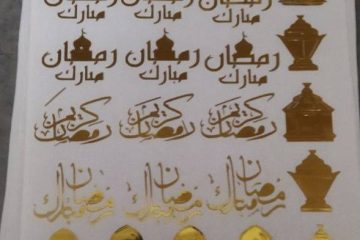 رمضان رمضان رمضان
مبارك مبارك مبارك
رمضان رمضان رمضان
مبارك مبارك مبارك
رمضان كريم رمضان كريم رمضان كريم
رمضان مبارك رمضان مبارك رمضان مبارك